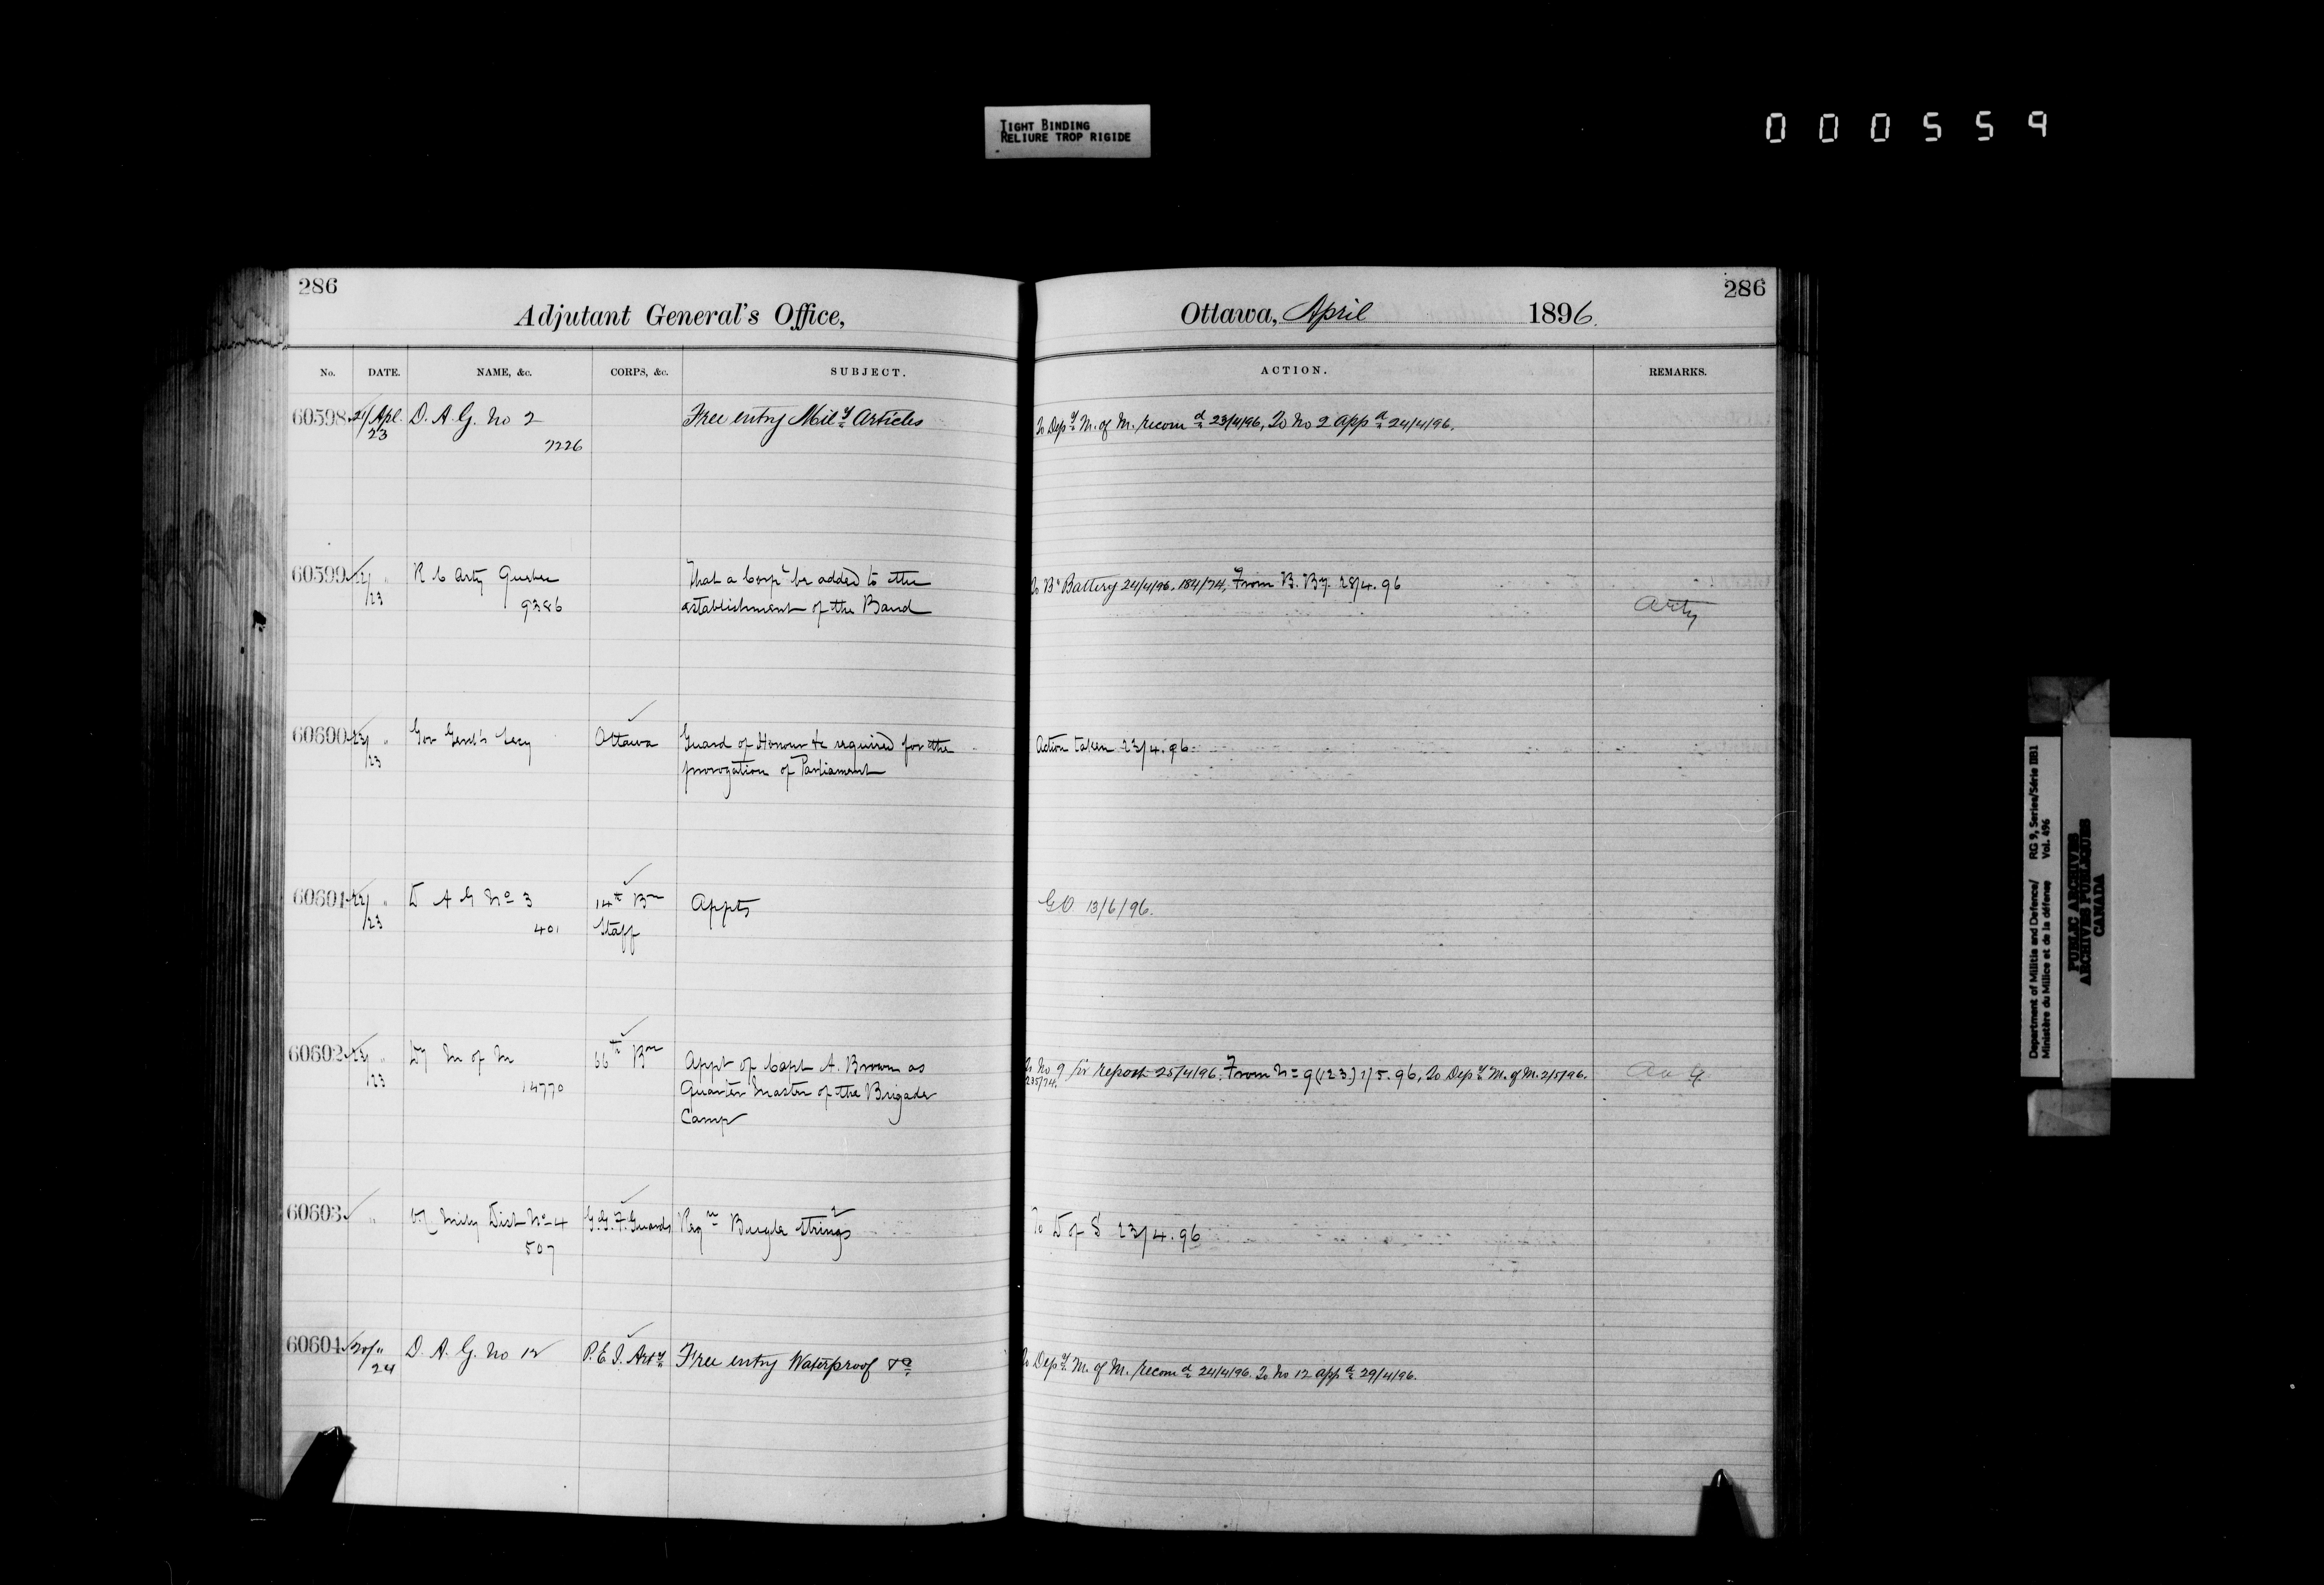 TIGHT BINDING
RELIURE TROP RIGIDE
000559
286
Adjutant General's Office,
No. DATE. NAME, &c. CORPS, &c. SUBJECT.
60598 21/ Apl. D. A. G. No 2 Free entry Mily Articles
23
7226
60599 22/ " R C Arty Quebec That a Corpl be added to the
/23 9386 establishment of the Band
60600 23/ " Gov Genl's Secy Ottawa Guard of Honour &c required for the
/23 prorogation of Parliament
60601 22/ " D A G No 3 14th Bn Appts
/23 401 Staff
60602 23/ " Dy M of M 66th Bn Appt of Capt A. Brown as
/23 14770 Quarter Master of the Brigade
Camp
60603 " Mily Dist No 4 G.G.F. Guards Reqn Bugle Strings
507
60604 20/ " D. A. G. No 12 P.E.I. Arty Free entry Waterproof &c
24
286
Ottawa, April 1896.
ACTION. REMARKS.
To Depy M. of M. recomd 23/4/96, To No 2 appd 24/4/96.
To "B" Battery 24/4/96. 184/74, From B. By. 28/4.96
Arty
Action taken 23/4.96
GO 13/6/96.
To No 9 for report 25/4/96. From No 9 (123) 1/5.96, To Depy M. of M. 2/5/96.
235/74.
To D of S 23/4.96
To Depy M. of M. recomd 24/4/96. To No 12 appd 29/4/96.
Department of Militia and Defence/ RG 9, Series/Série IIB1
Ministère du Milice et de la défense Vol. 496
PUBLIC ARCHIVES
ARCHIVES PUBLIQUES
CANADA